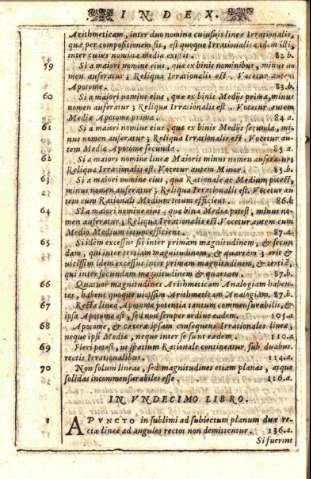 INDEX.
Arithmeticam, inter duo nomina cuiusuis lineæ Irrationalis,
quæ per compositionem sit, est quoque Irrationalis eadem illi,
inter cuius nomina media extitit. 82.b.
59 Si à maiori nomine eius, quæ ex binis nominibus, minus no
men auferatur; Reliqua Irrationalis est. Vocetur autem
Apotome. 83.b.
60 Si à maiori nomine eius, quæ ex binis Mediis prima, minus
nomen auferatur; Reliqua Irrationalis est. Vocetur autem
Mediæ Apotome prima. 84.a.
61 Si à maiori nomine eius, quæ ex binis Mediis secunda, mi-
nus nomen auferatur; Reliqua Irrationalis est. Vocetur au-
tem Mediæ Apotome secunda. 85.a.
62 Si à maiori nomine lineæ Maioris minus nomen auferatur;
Reliqua Irrationalis est. Vocetur autem Minor. 85.b.
63 Si à maiori nomine eius, quæ Rationale ac Medium potest,
minus nomen auferatur; Reliqua Irrationalis est. Vocetur au
tem cum Rationali Medium totum efficiens. 86.b.
64 Si à maiori nomine eius, quæ bina Media potest, minus no-
men auferatur; Reliqua Irrationalis est. Vocetur autem cum
Medio Medium totum efficiens. 87.a.
65 Si idem excessus sit inter primam magnitudinem, & secun
dam, qui inter tertiam magnitudinem, & quartam; erit &
vicissim idem excessus inter primam magnitudinem, & tertiā,
qui inter secundam magnitudinem & quartam. 87.b.
66 Quatuor magnitudines Arithmeticam Analogiam haben-
tes, habent quoque vicissim Arithmeticam Analogiam. 87.b.
67 Recta linea Apotomæ potentia tantum commensurabilis, &
ipsa Apotome est, sed non semper ordine eadem. 105.a.
68 Apotome, & cæteræ ipsam consequentes Irrationales lineæ,
neque ipsi Mediæ, neque inter se sunt eædem. 110.a.
69 Fieri potest, ut spatium Rationale contineatur sub duabus
rectis Irrationalibus. 114.a.
70 Non solum lineæ, sed magnitudines etiam planæ, atque
solidæ incommensurabiles esse. 116.a.
IN VNDECIMO LIBRO.
1 A PVNCTO in sublimi ad subiectum planum duæ re-
ctæ lineæ ad angulos rectos non demittentur. 136.a.
Si fuerint